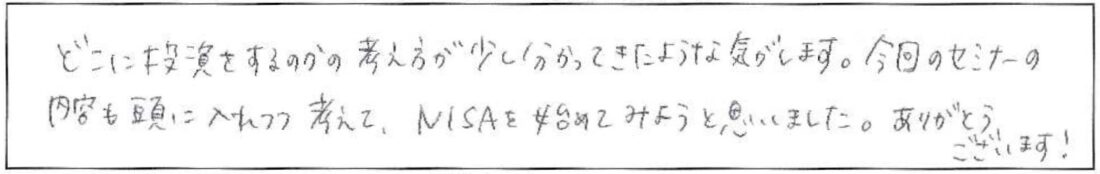 どこに投資をするのかの考え方が少し分かってきたような気がします。今回のセミナーの
内容も頭に入れつつ考えて、NISAを始めてみようと思いました。ありがとう
ございます!